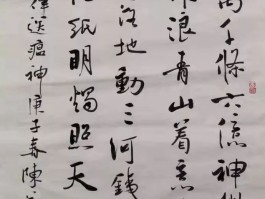 千條六億神州
浪青山着意
落地動三河鐵
纸明燭照天
律送瘟神庚子春陳